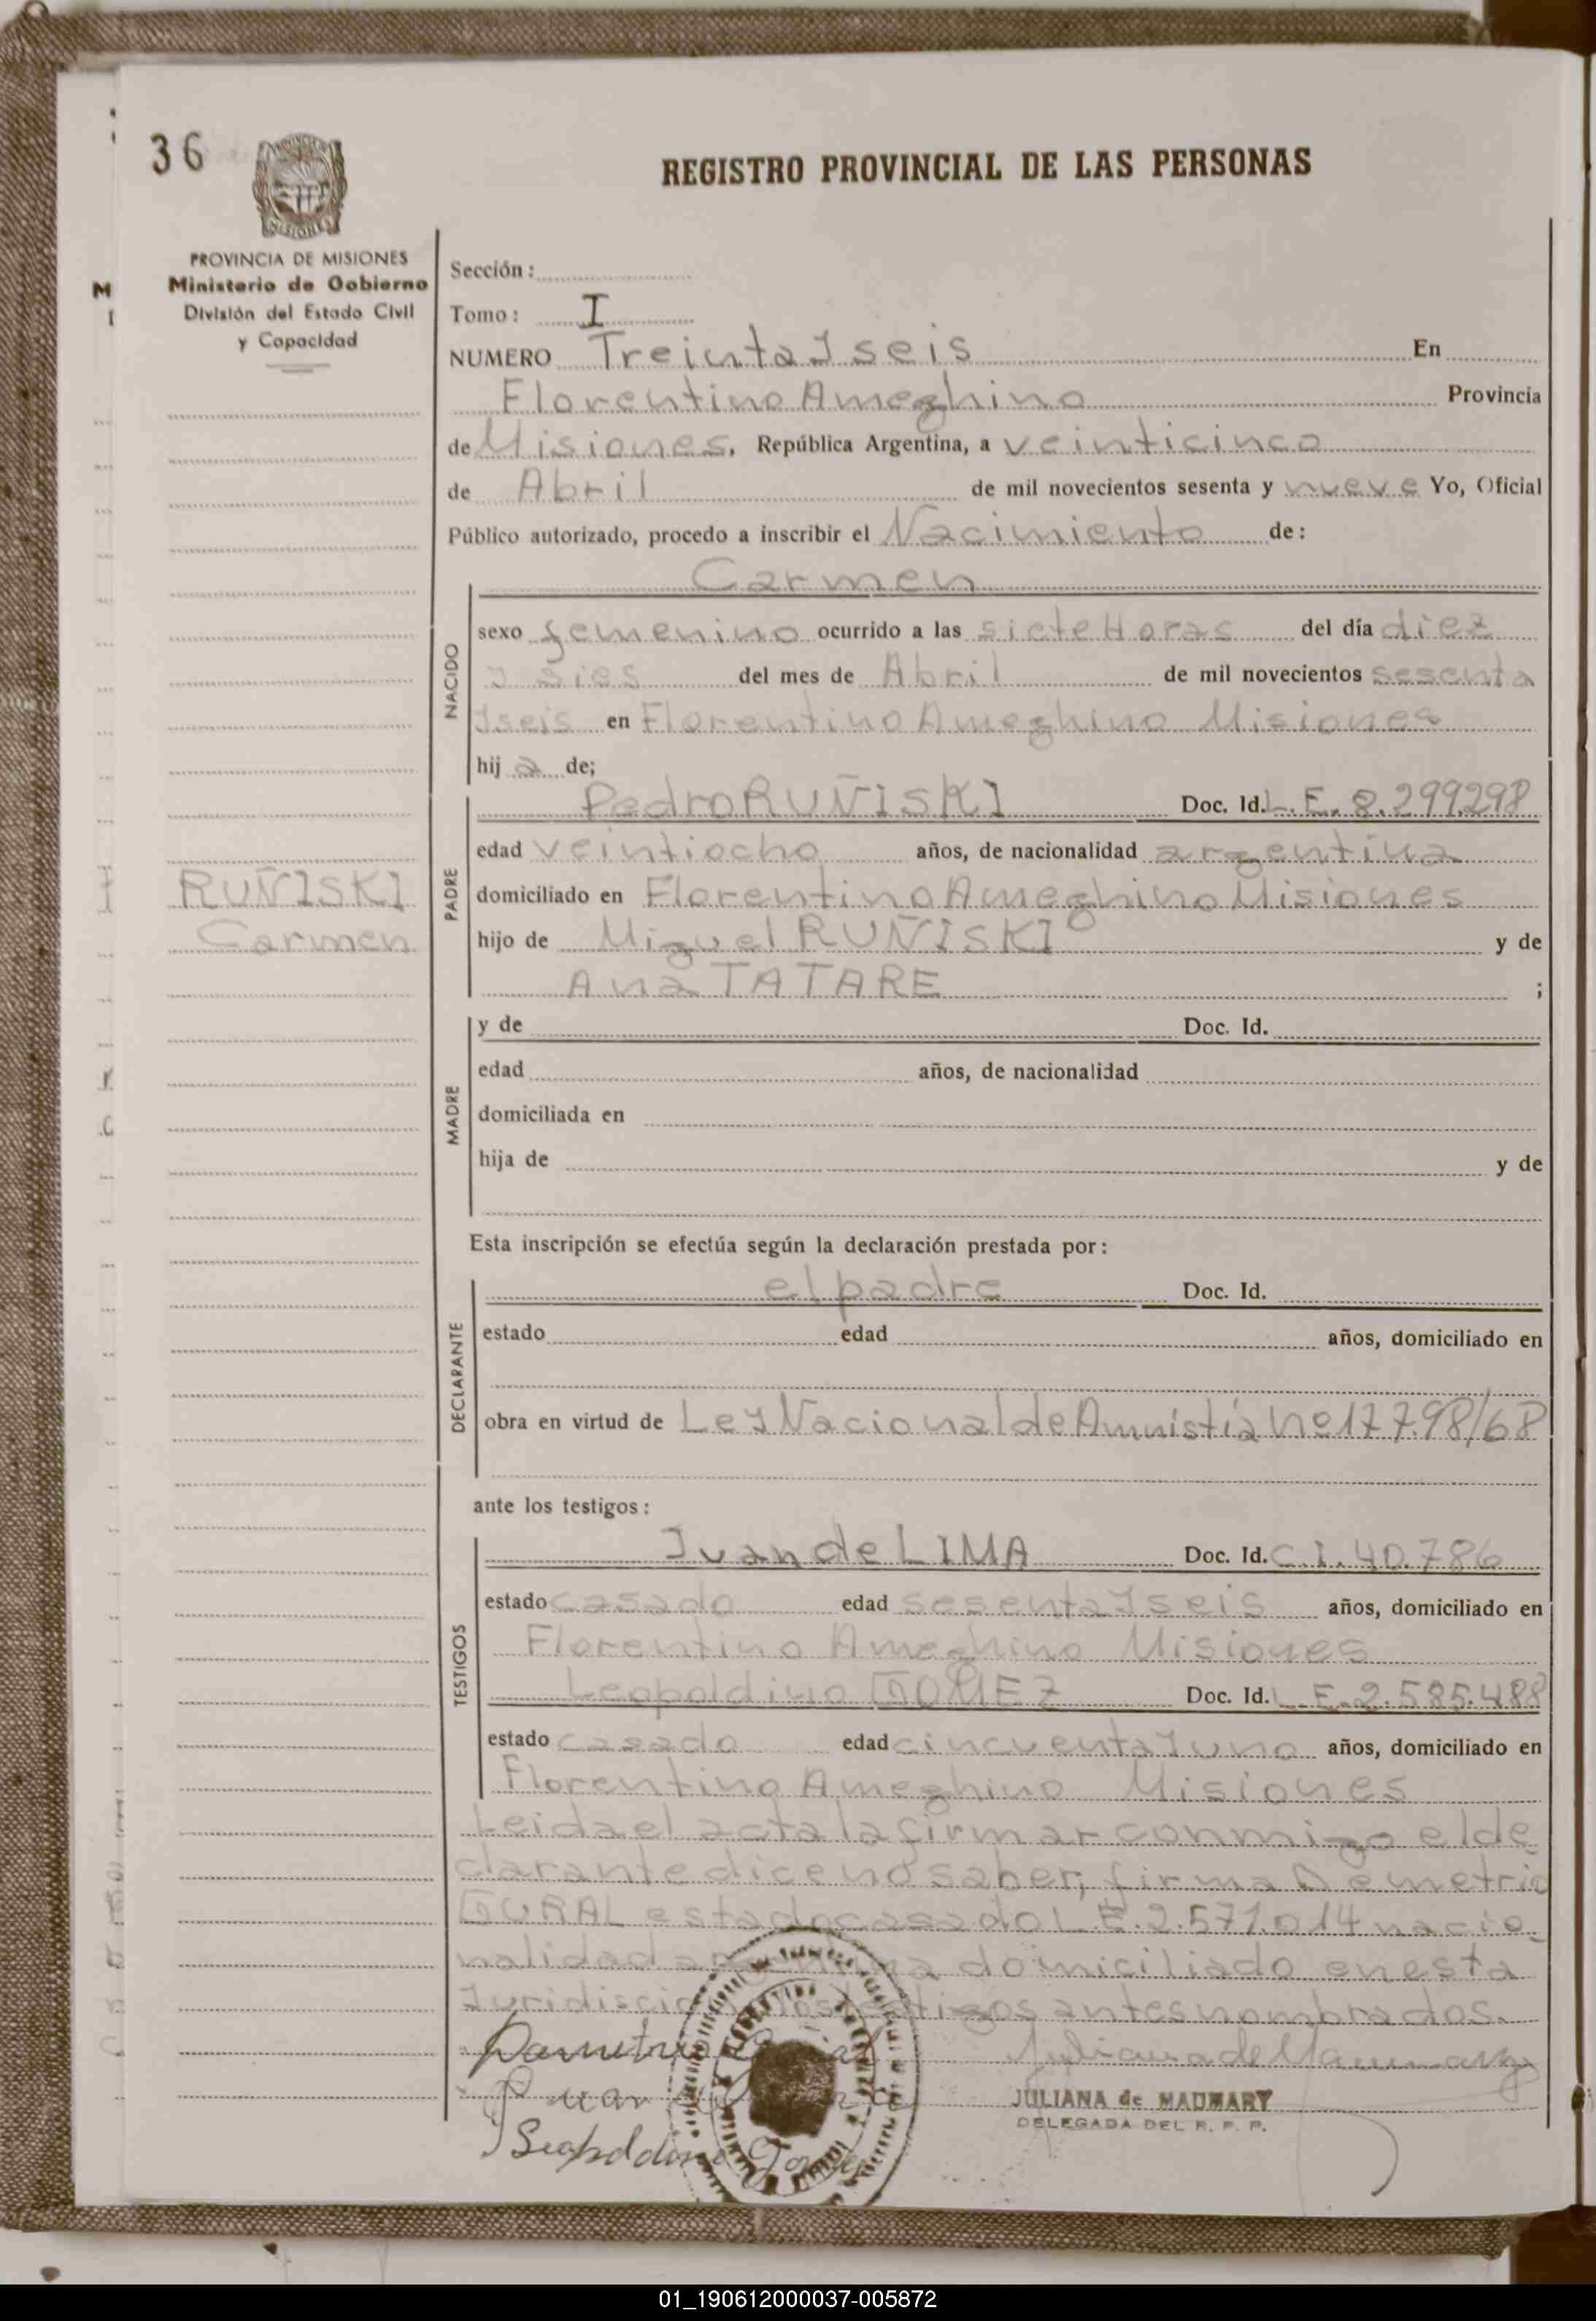 36
REGISTRO PROVINCIAL DE LAS PERSONAS
MISIONES
PROVINCIA DE MISIONES
Ministerio de Gobierno
División del Estado Civil
y Capacidad
Sección :
Tomo : I
NUMERO Treinta y seis En
Florentino Ameghino Provincia
de Misiones, República Argentina, a veinticinco
de Abril de mil novecientos sesenta y nueve Yo, Oficial
Público autorizado, procedo a inscribir el Nacimiento de :
Carmen
NACIDO
sexo femenino ocurrido a las siete Horas del día diez
y sies del mes de Abril de mil novecientos sesenta
y seis en Florentino Ameghino Misiones
hij a de;
PADRE
Pedro RUÑISKI Doc. Id. L.E. 8.299.298
edad veintiocho años, de nacionalidad argentina
domiciliado en Florentino Ameghino Misiones
hijo de Miguel RUÑISKI y de
Ana TATARE ;
RUÑISKI
Carmen
MADRE
y de Doc. Id.
edad años, de nacionalidad
domiciliada en
hija de y de
Esta inscripción se efectúa según la declaración prestada por :
DECLARANTE
el padre Doc. Id.
estado edad años, domiciliado en
obra en virtud de Ley Nacional de Amnistía Nº 177.98/68
ante los testigos :
TESTIGOS
Juan de LIMA Doc. Id. C.I. 40.786
estado casado edad sesenta y seis años, domiciliado en
Florentino Ameghino Misiones
Leopoldino GOMEZ Doc. Id. L.E. 2.585.488
estado casado edad cincuenta y uno años, domiciliado en
Florentino Ameghino Misiones
Leida el acta la firmar conmigo el de
clarante dice no saber, firma Demetrio
GURAL estado casado L.E. 2.571.014 nacio
nalidad domiciliado en esta
los testigos antes nombrados.
Juliana de Madmary
Juan
JULIANA de MADMARY
DELEGADA DEL R. P. P.
01_190612000037-005872